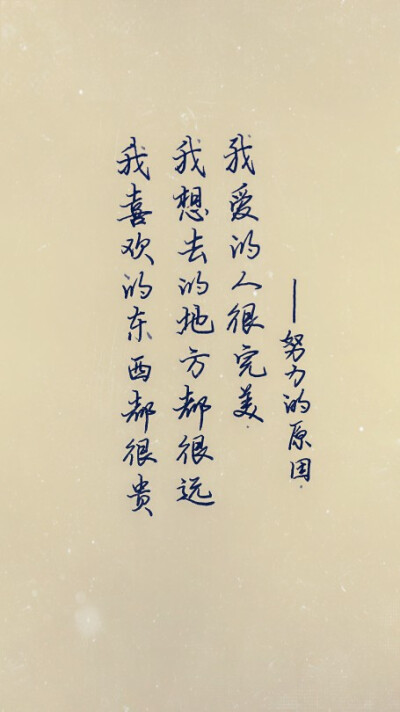 我喜欢的东西都很贵
我想去的地方都很远
我爱的人很完美.
——努力的原因.